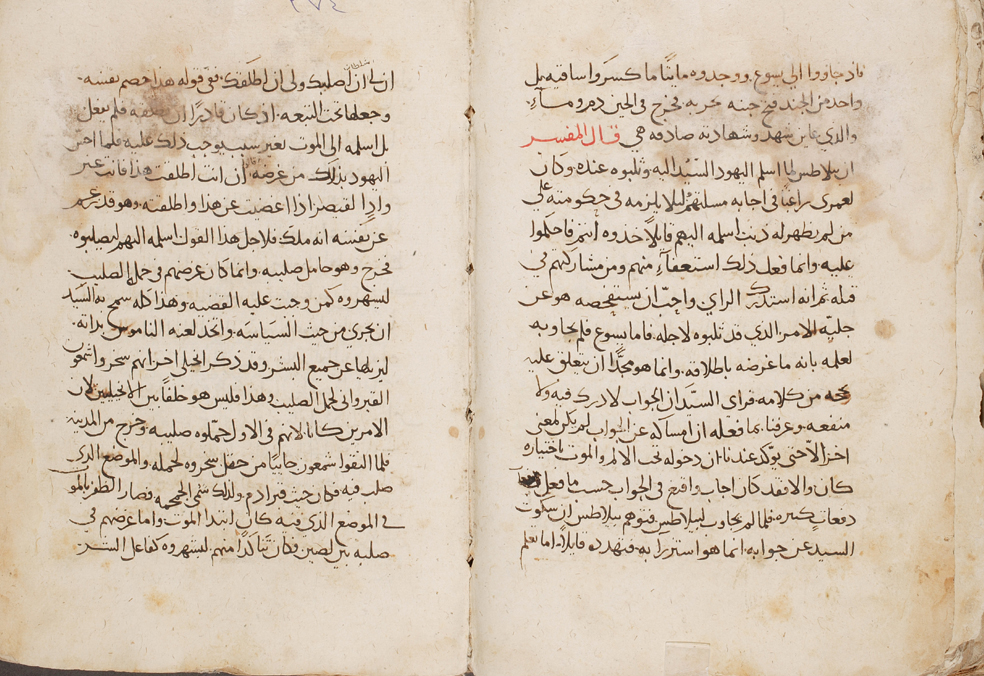 فاذ جاووا الي يسوع ووجدوه مايتًا ما كسروا ساقيه بل
واحد من الجند فتح جنبه بحربه فخرج في الحين دم وماء
والذي عاين شهد وشهادته صادقه هي قال المفسر
ان بيلاطس لما اسلم اليهود السيد اليه وثلبوه عنده وكان
لعمري راغبًا في اجابه مسلتهم ليلا يلزمه في حكومته علي
من لم يظهر له ذنب اسلمه اليهم قايلًا خدوه انتم فاحكموا
عليه وانما فعل ذلك استعفاءً منهم ومن مشاركتهم في
قتله ثم انه استدرك الراي واجبّ ان يستفحصه هو عن
جليّه الامر الدي قد ثلبوه لاجله فاما يسوع فلم يجاوبه
لعلمه بانه ما غرضه باطلاقه وانما هو مجدًّا ان يتعلق عليه
بحجه من كلامه فراى السيد ان الجواب لا درك فيه ولا
منفعه وعرفنا بما فعله ان امساكه عن الجواب لم يكن لمعني
اخر الا حتى يوكد عندنا ان دخوله تحت الالم والموت باختياره
كان والا فقد كان اجاب واقنع في الجواب حسب ما فعل
دفعات كثيره فلما لم يجاوب لبيلاطس فتوهم بيلاطس ان سكوت
السيد عن جوابه انما هو استزراء به فتهدده قايلًا اما تعلم
ان لي سلطان ان اصلبك ولي ان اطلقك ففي قوله هذا خصم نفسه
وجعلها تحت التبعه اذ كان قادرًا ان يطلقه فلم يفعل
بل اسلمه الي الموت بغير سبب يوجب ذلك عليه فلما احس
اليهود بذلك من غرضه قالوا ان انت اطلقت هذا فانت غير
وادًا لقيصر اذا اغضت عن هذا واطلقته وهو قد زعم
عن نفسه انه ملك فلاجل هذا القول اسلمه اليهم ليصلبوه
فخرج وهو حامل صليبه وانما كان غرضهم في حمل الصليب
ليشهروه كمن وجبت عليه القضيه وهذا كله سمح به السيد
ان يجري من حيث السياسه واتخذ لعنه الناموس بذاته
ليزيلها عن جميع البشر وقد ذكر انجيلي اخر انهم سخروا شمعون
القيرواني لحمل الصليب وهذا فليس هو خلفًا بين الانجيليين لان
الامرين كانا لانهم في الاول حملوه صليبه وخرج من المدينه
فلما التقوا شمعون جاييًا من حقل سخروه لحمله والموضع الدي
صلب فيه فكان حيث قبر ادم ولذلك سمي الجمجمه فصار الظفر بالموت
في الموضع الدي فيه كان ابتدا الموت واما غرضهم في
صلبه بين لصين فكان تناكدًا منهم ليشهروه كفاعل الشر